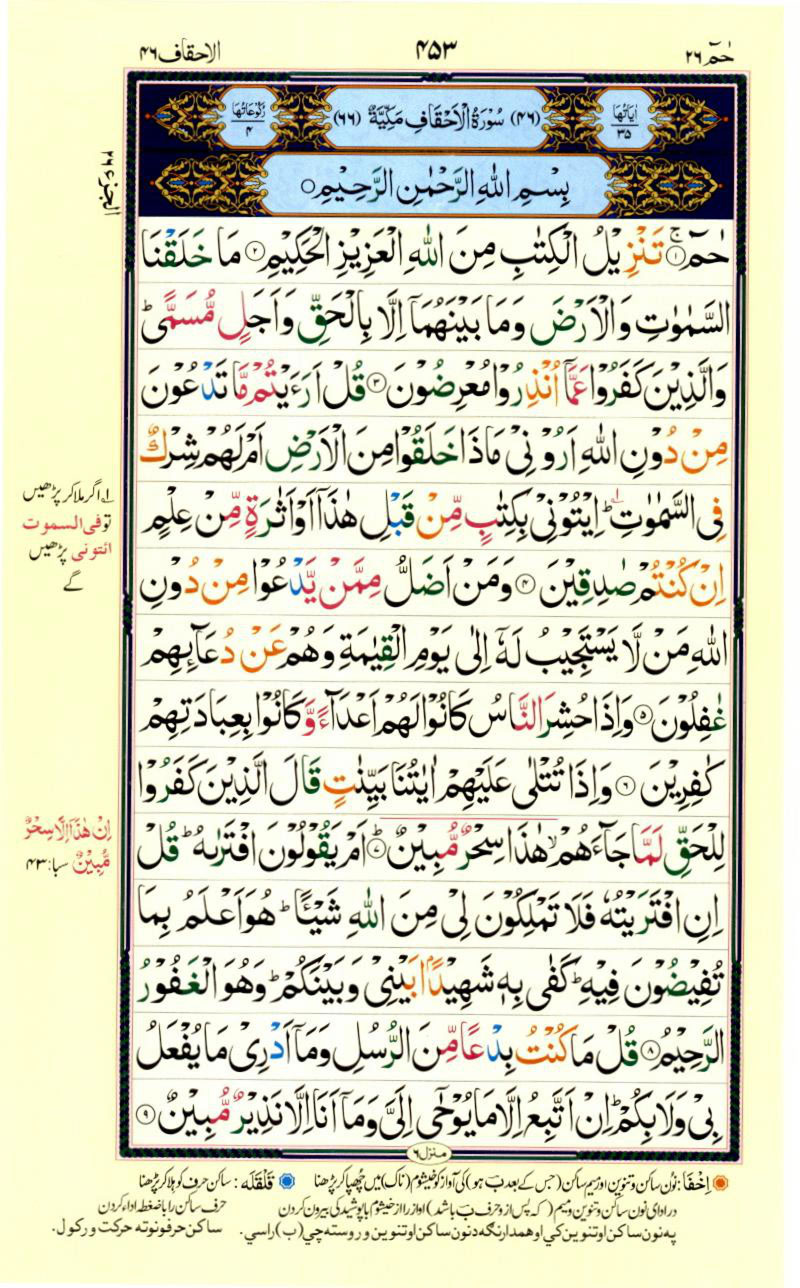 حٰمٓ ٢٦
٤٥٣
الاحقاف ٤٦
اٰيَاتُهَا ٣٥
(٤٦) سُوْرَةُ الْاَحْقَافِ مَكِّيَّةٌ (٦٦)
رُكُوْعَاتُهَا ٤
الجزء ٢٦
بِسْمِ اللّٰهِ الرَّحْمٰنِ الرَّحِيْمِ
حٰمٓ ۚ ١ تَنْزِيْلُ الْكِتٰبِ مِنَ اللّٰهِ الْعَزِيْزِ الْحَكِيْمِ ٢ مَا خَلَقْنَا
السَّمٰوٰتِ وَالْاَرْضَ وَمَا بَيْنَهُمَاۤ اِلَّا بِالْحَقِّ وَاَجَلٍ مُّسَمًّى ؕ
وَالَّذِيْنَ كَفَرُوْا عَمَّاۤ اُنْذِرُوْا مُعْرِضُوْنَ ٣ قُلْ اَرَءَيْتُمْ مَّا تَدْعُوْنَ
مِنْ دُوْنِ اللّٰهِ اَرُوْنِيْ مَاذَا خَلَقُوْا مِنَ الْاَرْضِ اَمْ لَهُمْ شِرْكٌ
فِي السَّمٰوٰتِ ؕ اِيْتُوْنِيْ بِكِتٰبٍ مِّنْ قَبْلِ هٰذَاۤ اَوْ اَثٰرَةٍ مِّنْ عِلْمٍ
اِنْ كُنْتُمْ صٰدِقِيْنَ ٤ وَمَنْ اَضَلُّ مِمَّنْ يَّدْعُوْا مِنْ دُوْنِ
اللّٰهِ مَنْ لَّا يَسْتَجِيْبُ لَهٗۤ اِلٰى يَوْمِ الْقِيٰمَةِ وَهُمْ عَنْ دُعَآئِهِمْ
غٰفِلُوْنَ ٥ وَاِذَا حُشِرَ النَّاسُ كَانُوْا لَهُمْ اَعْدَآءً وَّكَانُوْا بِعِبَادَتِهِمْ
كٰفِرِيْنَ ٦ وَاِذَا تُتْلٰى عَلَيْهِمْ اٰيٰتُنَا بَيِّنٰتٍ قَالَ الَّذِيْنَ كَفَرُوْا
لِلْحَقِّ لَمَّا جَآءَهُمْ ۙ هٰذَا سِحْرٌ مُّبِيْنٌ ؕ ٧ اَمْ يَقُوْلُوْنَ افْتَرٰىهُ ؕ قُلْ
اِنِ افْتَرَيْتُهٗ فَلَا تَمْلِكُوْنَ لِيْ مِنَ اللّٰهِ شَيْـًٔا ؕ هُوَ اَعْلَمُ بِمَا
تُفِيْضُوْنَ فِيْهِ ؕ كَفٰى بِهٖ شَهِيْدًۢا بَيْنِيْ وَبَيْنَكُمْ ؕ وَهُوَ الْغَفُوْرُ
الرَّحِيْمُ ٨ قُلْ مَا كُنْتُ بِدْعًا مِّنَ الرُّسُلِ وَمَاۤ اَدْرِيْ مَا يُفْعَلُ
بِيْ وَلَا بِكُمْ ؕ اِنْ اَتَّبِعُ اِلَّا مَا يُوْحٰۤى اِلَيَّ وَمَاۤ اَنَا اِلَّا نَذِيْرٌ مُّبِيْنٌ ٩
١ـ اگر ملا کر پڑھیں
تو فی السموت
ائتونی پڑھیں
گے
اِنْ هٰذَاۤ اِلَّا سِحْرٌ
مُّبِيْنٌ سبا: ٤٣
منزل ٦
اِخْفَا: نُون ساکن و تنوین اور میم ساکن (جس کے بعد ب ہو) کی آواز کو خیشوم (ناک) میں چھپا کر پڑھنا قَلْقَلَه: ساکن حرف کو ہلا کر پڑھنا
در ادای نون ساکن و تنوین و میم (که پس از و حرف ب باشد) آواز را از خیشوم با پوشیدگی بیرون کردن حرف ساکن را با ضغطه ادا کردن
په نون ساکن او تنوین کي او همدارنګه د نون ساکن او تنوین وروسته چي (ب) راسي. ساکن حرفونو ته حرکت ورکول.